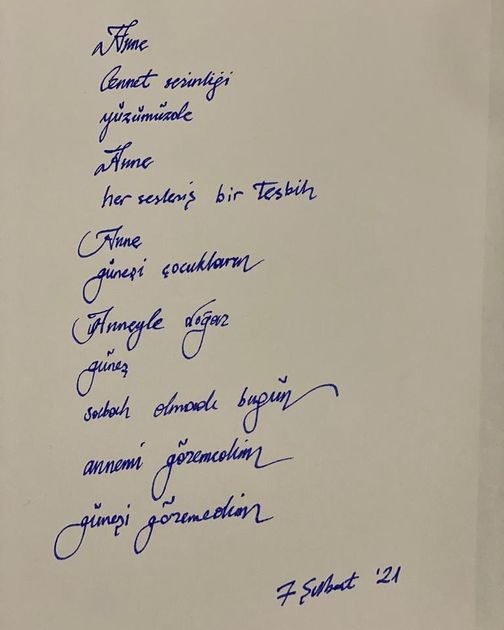 Anne
Cennet serinliği
yüzümüzde
Anne
her sesleniş bir tesbih
Anne
güneşi çocukların
Anneyle doğar
güneş
sabah olmadı bugün
annemi göremedim
güneşi göremedim
7 Şubat '21